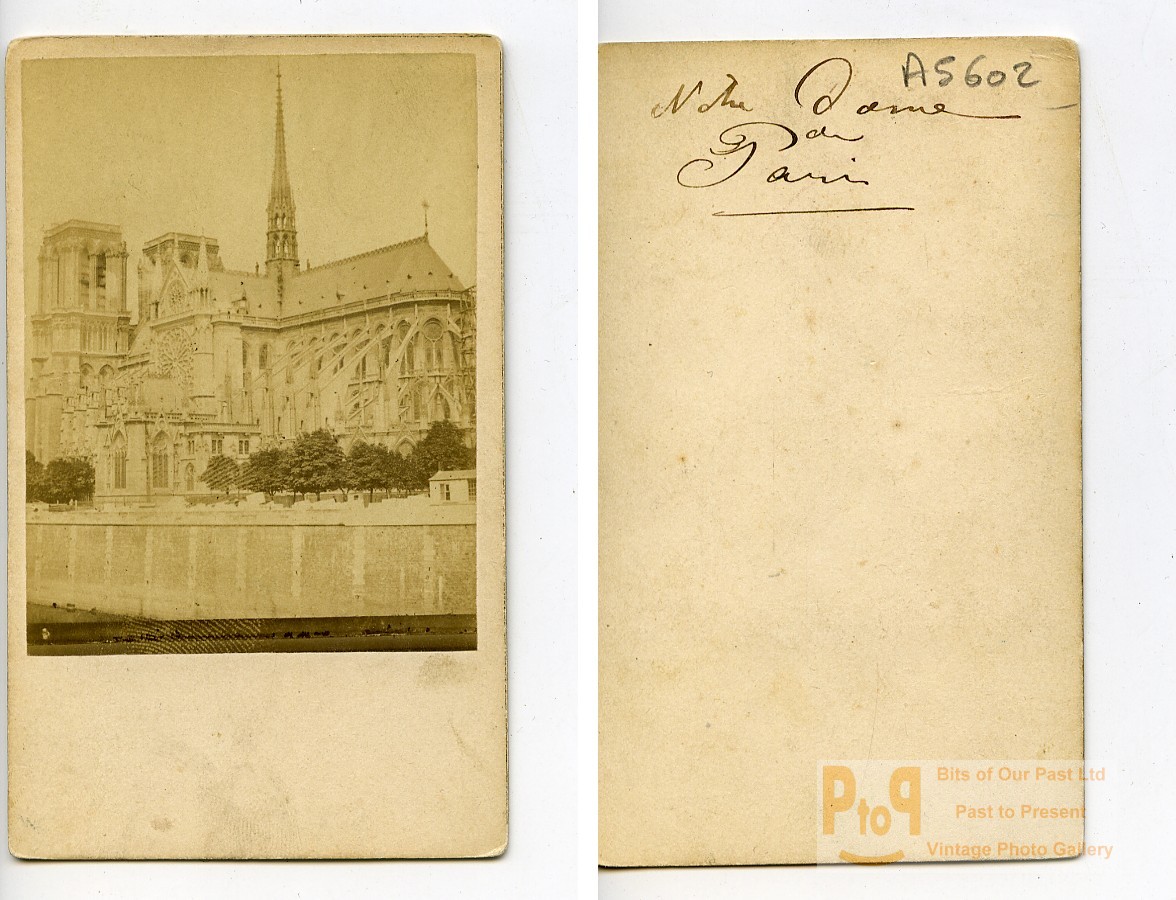 A5602
Notre Dame
de
Paris
PtoP
Bits of Our Past Ltd
Past to Present
Vintage Photo Gallery